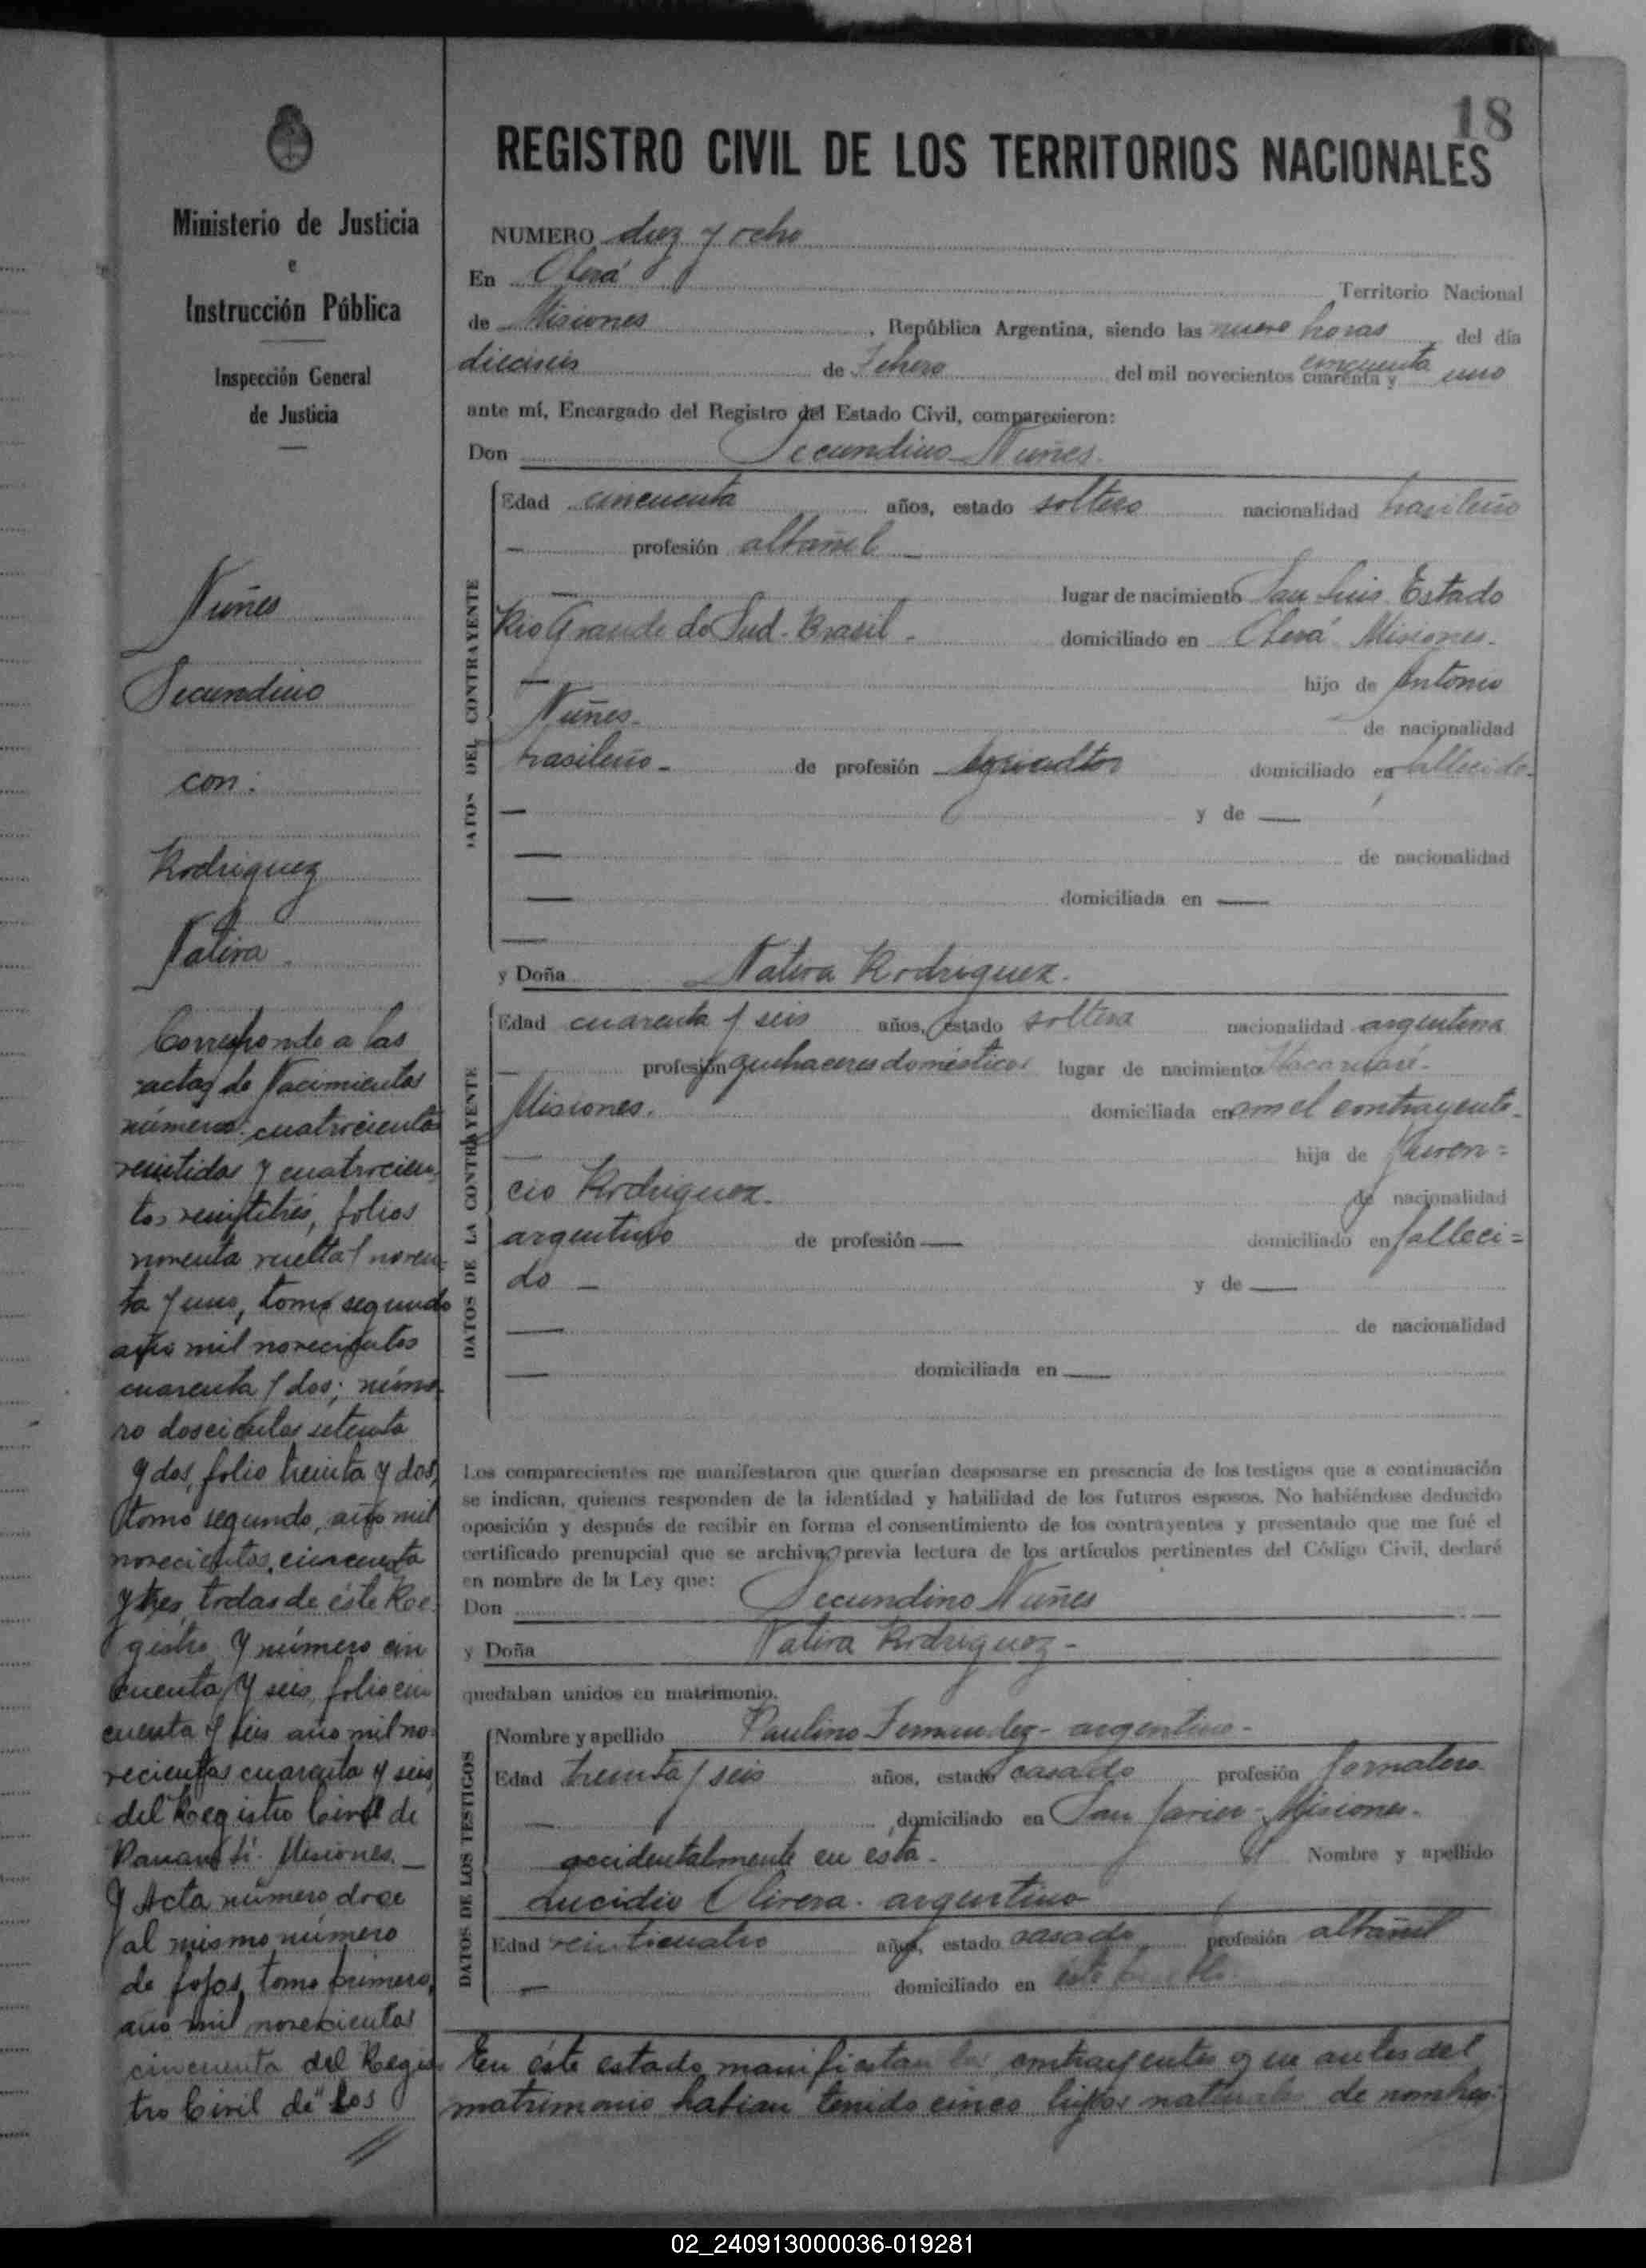 18
REGISTRO CIVIL DE LOS TERRITORIOS NACIONALES
Ministerio de Justicia
e
Instrucción Pública
Inspección General
de Justicia
Nuñes
Secundino
con:
Rodriguez
Nativa
Corresponde a las
actas de Nacimientos
números cuatrocientos
veintidos y cuatrocien
tos veintitrés, folios
noventa vuelta y noven
ta y uno, tomo segundo
año mil novecientos
cuarenta y dos; núme
ro doscientos setenta
y dos, folio treinta y dos,
tomo segundo, año mil
novecientos cincuenta
y tres, todas de éste Re
gistro. Y número cin
cuenta y seis, folio cin
cuenta y seis año mil no
vecientos cuarenta y seis,
del Registro Civil de
Panambí. Misiones.
Y Acta número doce
al mismo número
de fojas, tomo primero,
año mil novecientos
cincuenta del Regis
tro Civil de "Los
NUMERO diez y ocho
En Oberá Territorio Nacional
de Misiones, República Argentina, siendo las nueve horas del día
dieciseis de Febrero del mil novecientos cuarenta y cincuenta uno
ante mí, Encargado del Registro del Estado Civil, comparecieron:
Don Secundino Nuñes.
DATOS DEL CONTRAYENTE
Edad cincuenta años, estado soltero nacionalidad brasileño
— profesión albañil —
— lugar de nacimiento San Luis Estado
Rio Grande do Sud - Brasil. domiciliado en Oberá Misiones.
— hijo de Antonio
Nuñes. de nacionalidad
brasileño - de profesión agricultor domiciliado en fallecido.
— y de —
— de nacionalidad
— domiciliada en —
—
y Doña Nativa Rodriguez.
DATOS DE LA CONTRAYENTE
Edad cuarenta y seis años, estado soltera nacionalidad argentina
— profesión quehaceres domésticos lugar de nacimiento
Misiones. domiciliada en con el contrayente.
— hija de Juven=
cio Rodriguez. de nacionalidad
argentino de profesión — domiciliado en falleci=
do — y de —
— de nacionalidad
— domiciliada en —
Los comparecientes me manifestaron que querían desposarse en presencia de los testigos que a continuación
se indican, quienes responden de la identidad y habilidad de los futuros esposos. No habiéndose deducido
oposición y después de recibir en forma el consentimiento de los contrayentes y presentado que me fué el
certificado prenupcial que se archiva, previa lectura de los artículos pertinentes del Código Civil, declaré
en nombre de la Ley que:
Don Secundino Nuñes
y Doña Nativa Rodriguez -
quedaban unidos en matrimonio.
DATOS DE LOS TESTIGOS
Nombre y apellido Paulino Fernandez - argentino -
Edad treinta y seis años, estado casado profesión jornalero
— domiciliado en San Javier - Misiones.
accidentalmente en ésta. Nombre y apellido
Lucidio Olivera. argentino
Edad veinticuatro años, estado casado profesión albañil
— domiciliado en este pueblo.
En éste estado manifiestan los contrayentes que antes del
matrimonio habian tenido cinco hijos naturales de nombres:
02_240913000036-019281